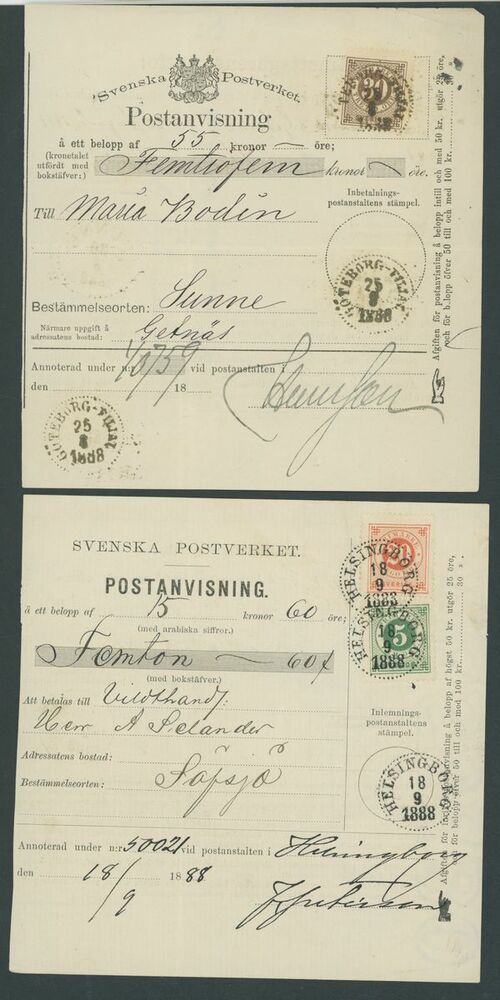 Svenska Postverket.
30
Postanvisning
å ett belopp af 55 kronor — öre;
(kronetalet utfördt med bokstäfver:) Femtiofem kronor — öre.
Till Maria Bodin
Inbetalnings-
postanstaltens stämpel.
GÖTEBORG-FILIAL
25
8
1888
Bestämmelseorten: Sunne
Närmare uppgift å
adressatens bostad:
Annoterad under n:r 759 vid postanstalten i
den 18
GÖTEBORG-FILIAL
25
8
1888
Afgiften för postanvisning å belopp intill och med 50 kr. utgör 25 öre,
och för belopp öfver 50 till och med 100 kr.
SVENSKA POSTVERKET.
POSTANVISNING.
å ett belopp af 15 kronor 60 öre;
(med arabiska siffror.)
Femton — 60
(med bokstäfver.)
Att betalas till
Herr A Selander
Adressatens bostad:
Bestämmelseorten: Säfsjö
Annoterad under n:r 50021 vid postanstalten i Helsingborg
den 18/9 1888
HELSINGBORG
18
9
1888
5
HELSINGBORG
18
9
1888
Inlemnings-
postanstaltens
stämpel.
HELSINGBORG
18
9
1888
Afgiften för postanvisning å belopp af högst 50 kr. utgör 25 öre,
och för belopp öfver 50 till och med 100 kr. 30 ».